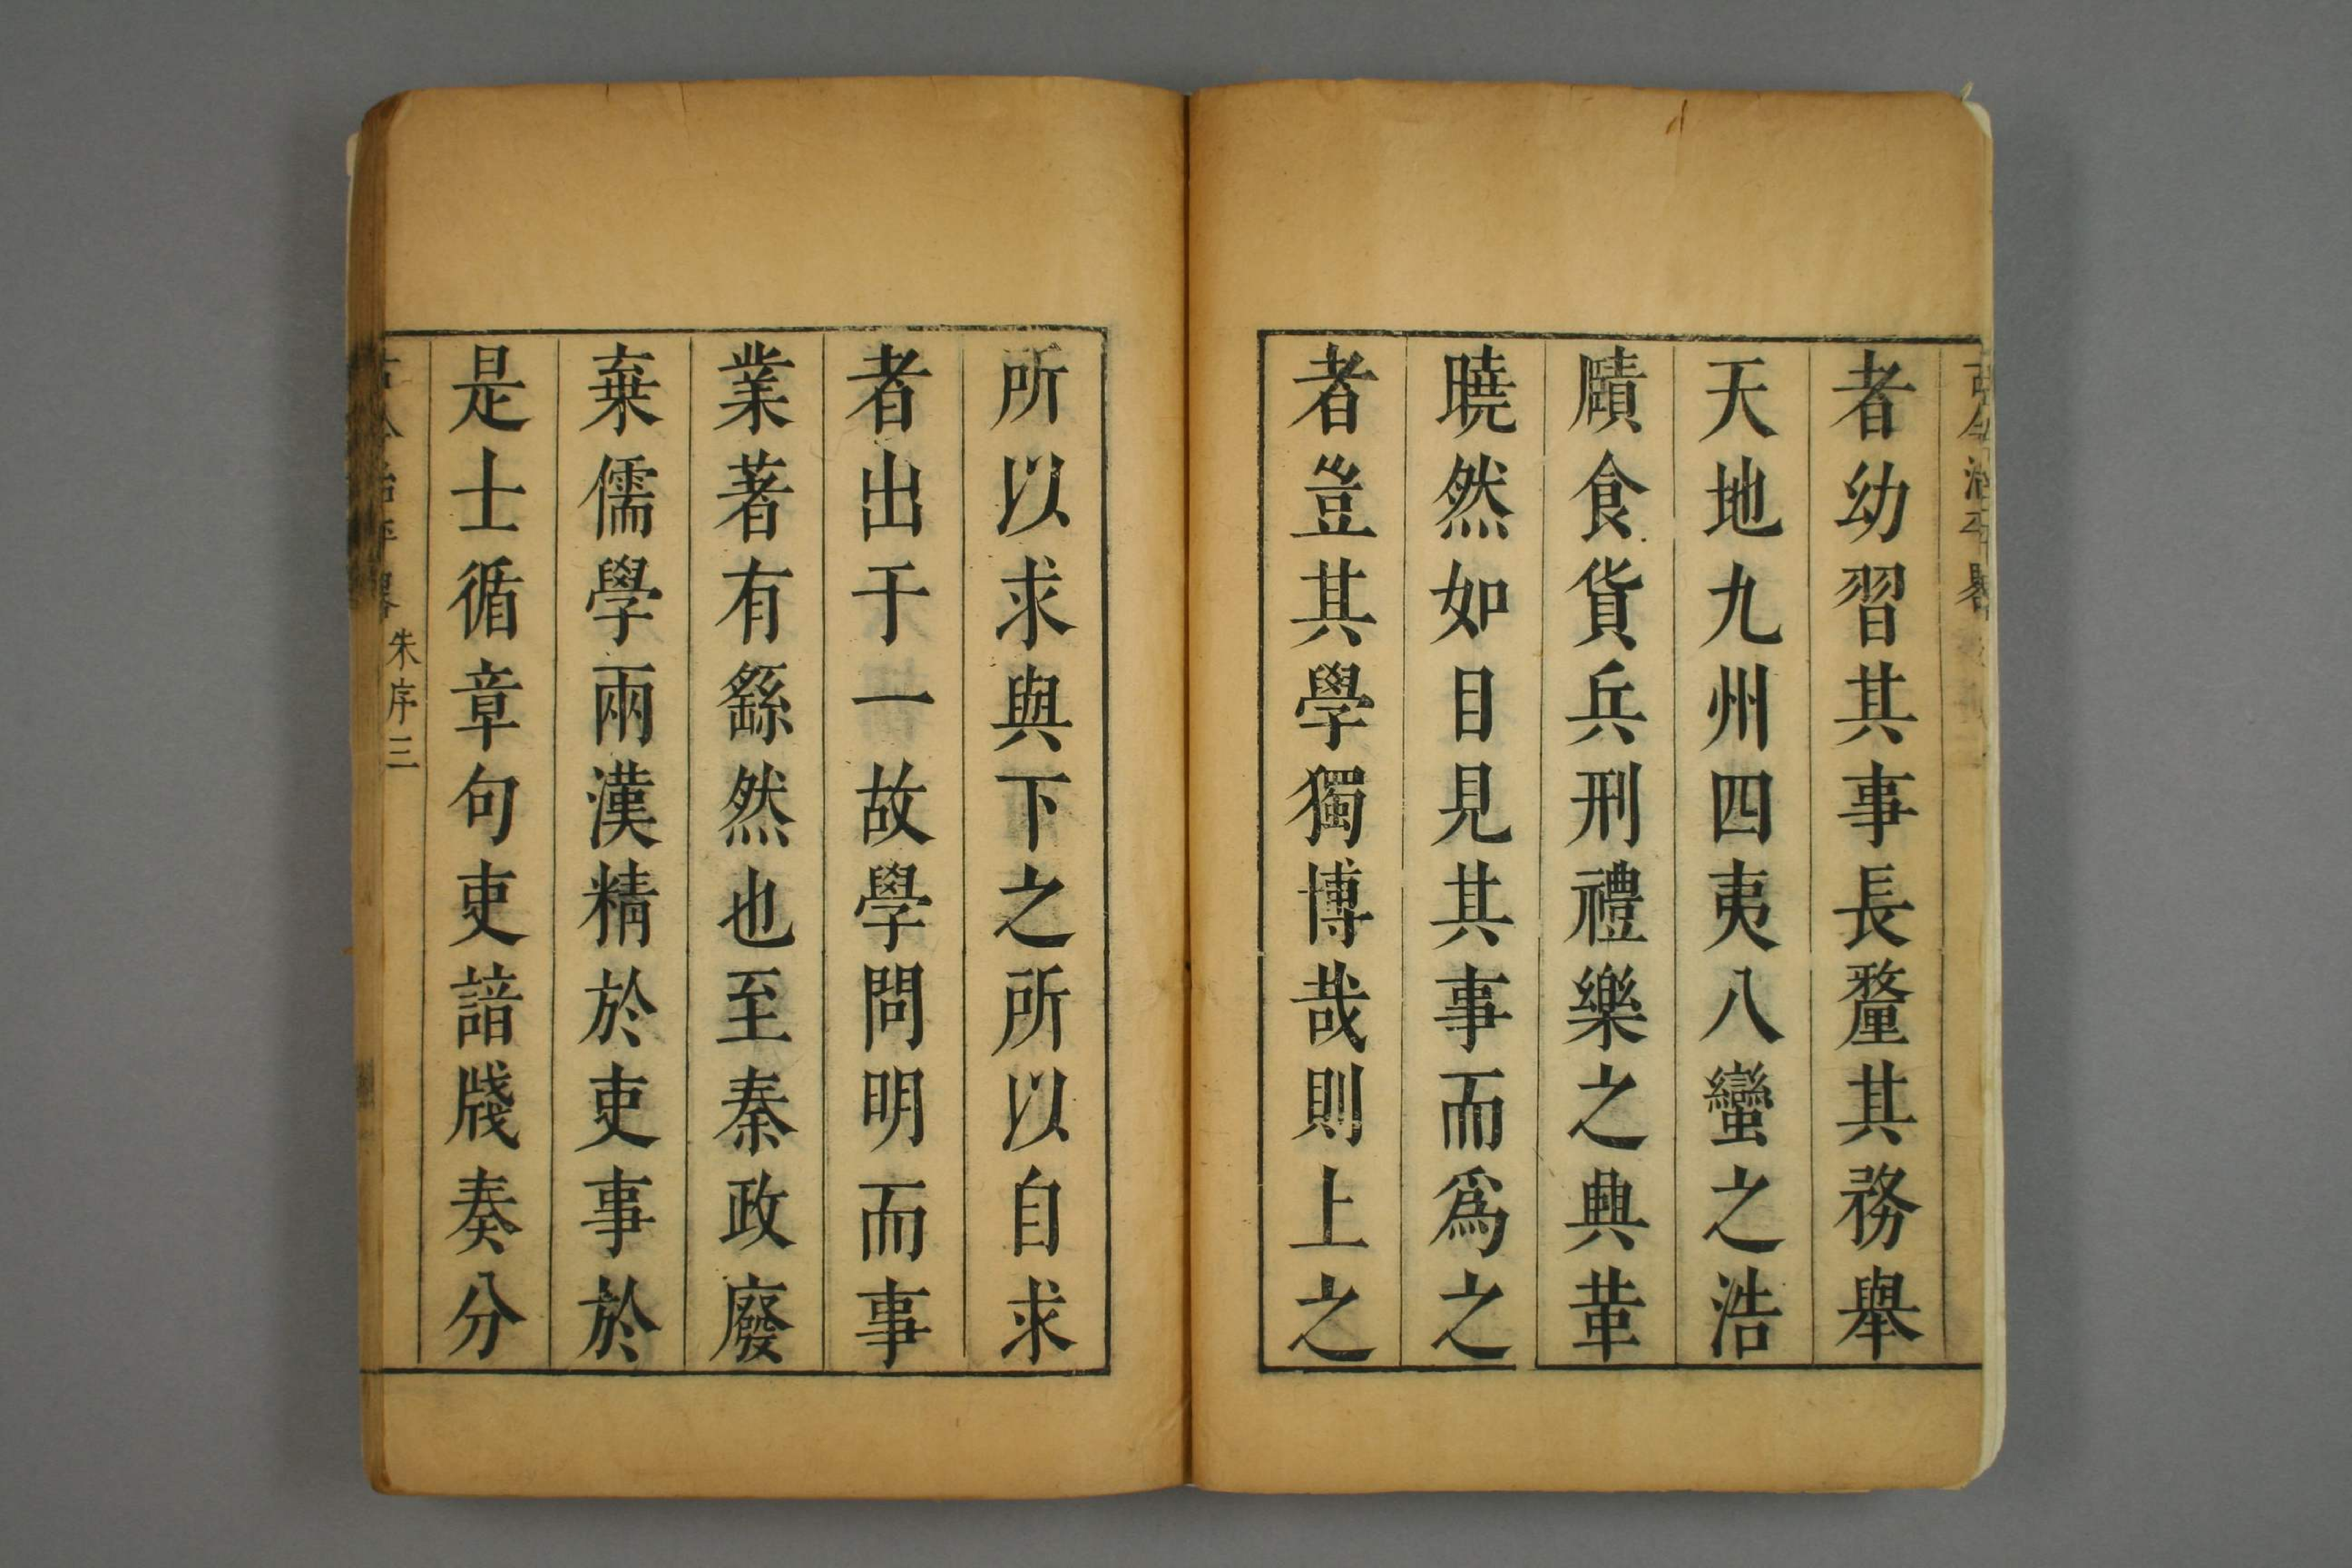 古今治平畧
者幼習其事長釐其務舉
天地九州四夷八蠻之浩
賾食貨兵刑禮樂之典革
曉然如目見其事而爲之
者豈其學獨博哉則上之
所以求與下之所以自求
者出于一故學問明而事
業著有繇然也至秦政廢
棄儒學兩漢精於吏事於
是士循章句吏諳牋奏分
古今治平畧 朱序 三